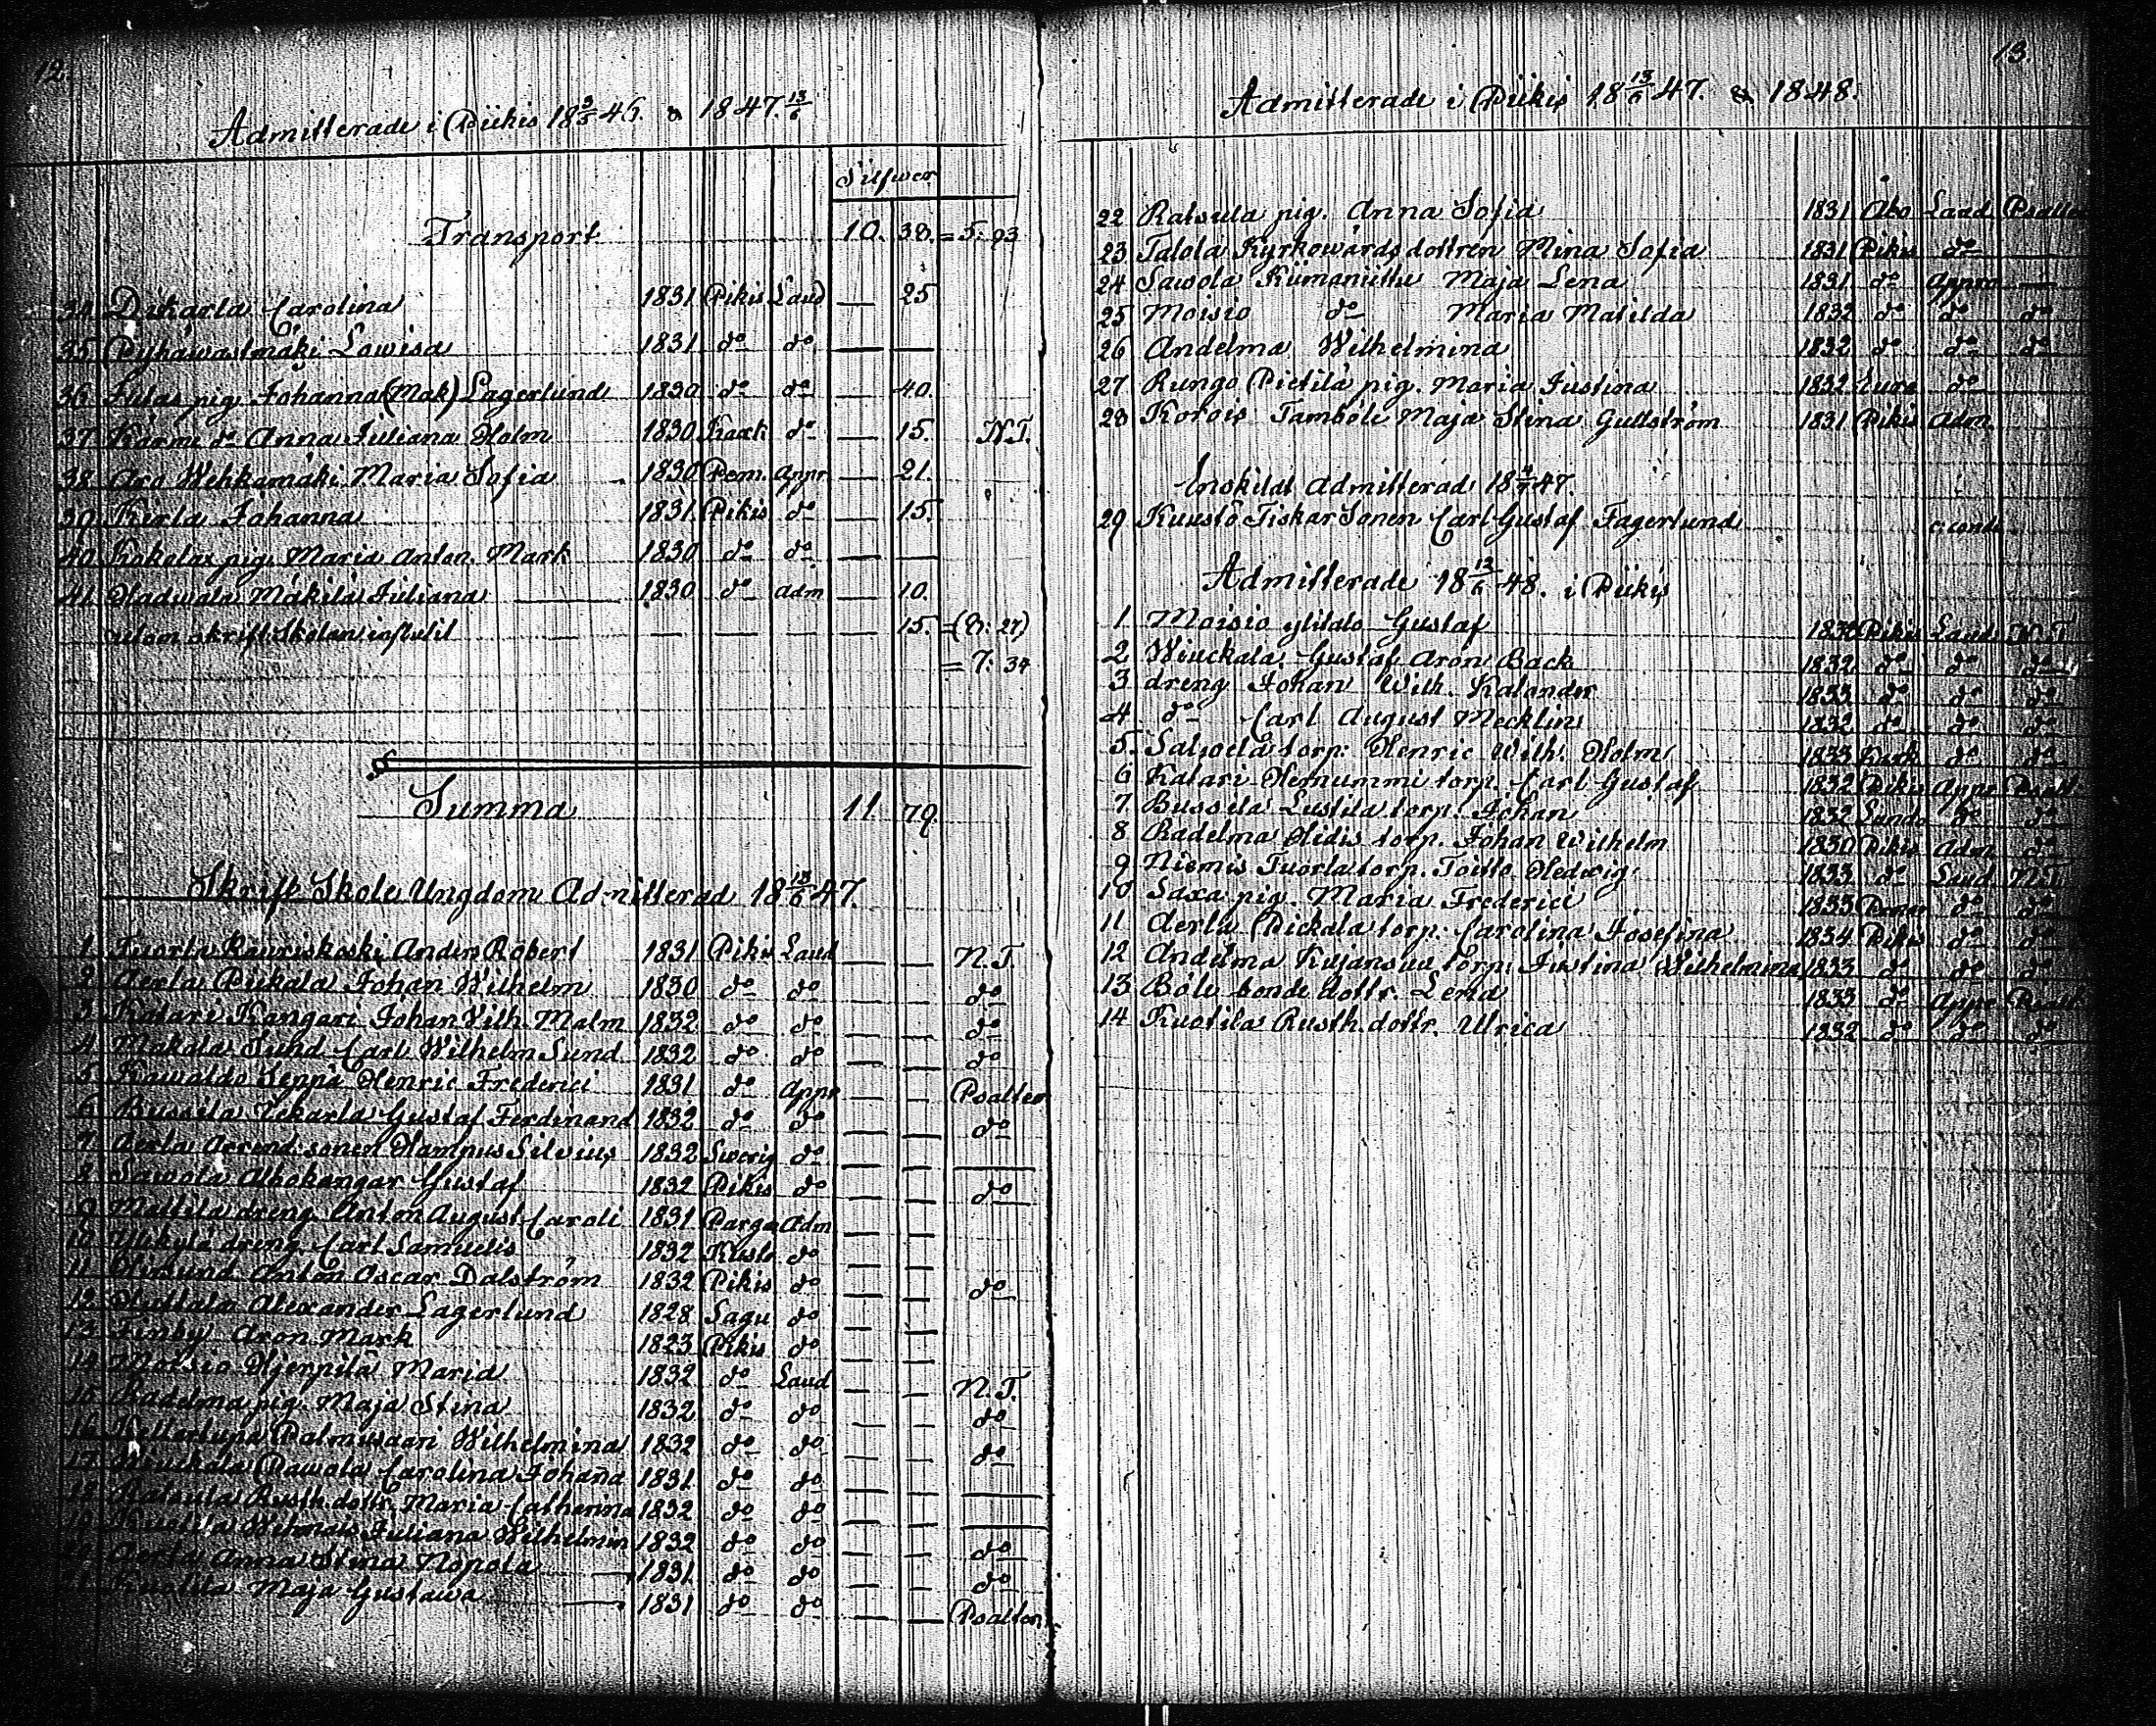 12.
Admitterade i Piikis 18 3/5 46. & 1847. 13/6
Silfwer
Transport 10. 38. = 5: 93
34 Dikarla Carolina 1831 Pikis Laud — 25
35 Pyhäwastmäki Lowisa 1831 do do — —
36 pig. Johanna (Mak) Lagerlund 1830 do do — 40.
37 Karmi do Anna Juliana Holm 1830 do — 15. N.T.
38 Aro Wehkamäki Maria Sofia 1830 Pem. Appr — 21.
39 Kirla Johanna 1831 Pikis do — 15.
40 pig. Maria Anton. Mark 1830 do do — —
41 Hadwala Mäkilä Juliana 1830 do adm — 10.
utom skrift Skolan influtit — — — — 15. = (8: 27)
= 7: 34
Summa 11. 79.
Skrift Skole Ungdom Admitterad 18 13/6 47.
1 Tuorla Kauriskoski Anders Robert 1831 Pikis Laud — — N.T.
2 Aerla Pickala Johan Wilhelm 1830 do do — — do
3 Katari Kangari Johan Vilh. Malm 1832 do do — — do
4 Makala Sund Carl Wilhelm Sund 1832 do do — — do
5 Kawaldo Seppä Henric Frederici 1831 do Appr — — Psalter
6 Bussila Uckarla Gustaf Ferdinand 1832 do do — — do
7 Aerla Arrend. sonen Hampus Silvius 1832 Swerig do — — —
8 Sawola Alhokangar Gustaf 1832 Pikis do — — do
9 Mattila dreng Anton August Caroli 1831 Pargas Adm — —
10 dreng Carl Samuelis 1832 Kusto do — —
11 Anton Oscar Dalström 1832 Pikis do — — do
12 Alexander Lagerlund 1828 Sagu do — —
13 Finby Aron Mark 1823 Pikis do — —
14 Moisio Hjerpilä Maria 1832 do Laud — — N.T.
15 Radelma pig. Maja Stina 1832 do do — — do
16 Palmusaari Wilhelmina 1832 do do — — do
17 Wiuckala Pawola Carolina Johana 1831 do do — — —
18 Ratsula Rusth. dottr. Maria Catherina 1832 do do — — —
19 Kuotila Juliana Wilhelmin 1832 do do — — do
20 Aerla Anna Stina Nopola — 1831 do do — — do
21 Kuotila Maja Gustawa — 1831 do do — — Psalter
13.
Admitterade i Piikis 18 13/6 47. & 1848.
22 Ratsula pig. Anna Sofia 1831 Abo Laud Psalter
23 Talola Kyrkowärds dottren Mina Sofia 1831 Pikis do —
24 Sawola Kiimaniittu Maja Lena 1831 do Appro —
25 Moisio do Maria Matilda 1832 do do do
26 Andelma Wilhelmina 1832 do do do
27 Rungo Pietilä pig. Maria Justina 1832 Eura do
28 Korois Tamböle Maja Stina Gullström 1831 Pikis Adm.
Enskilat Admitterad 18 4/7 47.
29 Kuustö Fiskar Sonen Carl Gustaf Fagerlund c: cond.
Admitterade 18 12/6 48. i Piikis
1 Moisio ylitalo Gustaf 1830 Pikis Laud N.T
2 Wiuckala Gustaf Aron Back 1832 do do do
3 dreng Johan Wilh. Kalander 1833 do do do
4 do Carl August Mecklin 1832 do do do
5 Salwela torp. Henric Wilh. Holm 1833 Kark do do
6 Katari Hemummi torp. Carl Gustaf 1832 Pikis Appr Psalt.
7 Bussila Lustila torp. Johan 1832 Lundo do do
8 Radelma Hidis torp. Johan Wilhelm 1830 Pikis Adm. do
9 Niemis Tuorla torp. Toitto Hedwig 1833 do Laud N.T.
10 Saxa pig. Maria Frederici 1833 Pemar do do
11 Aerla Pickala torp. Carolina Josefina 1834 Pikis do do
12 Andelma Kujansuu torp. Justina Wilhelmina 1833 do do do
13 Böle bonde dottr. Lena 1833 do Appr Psalt.
14 Kuotila Rusth. dottr. Ulrica 1832 do do do